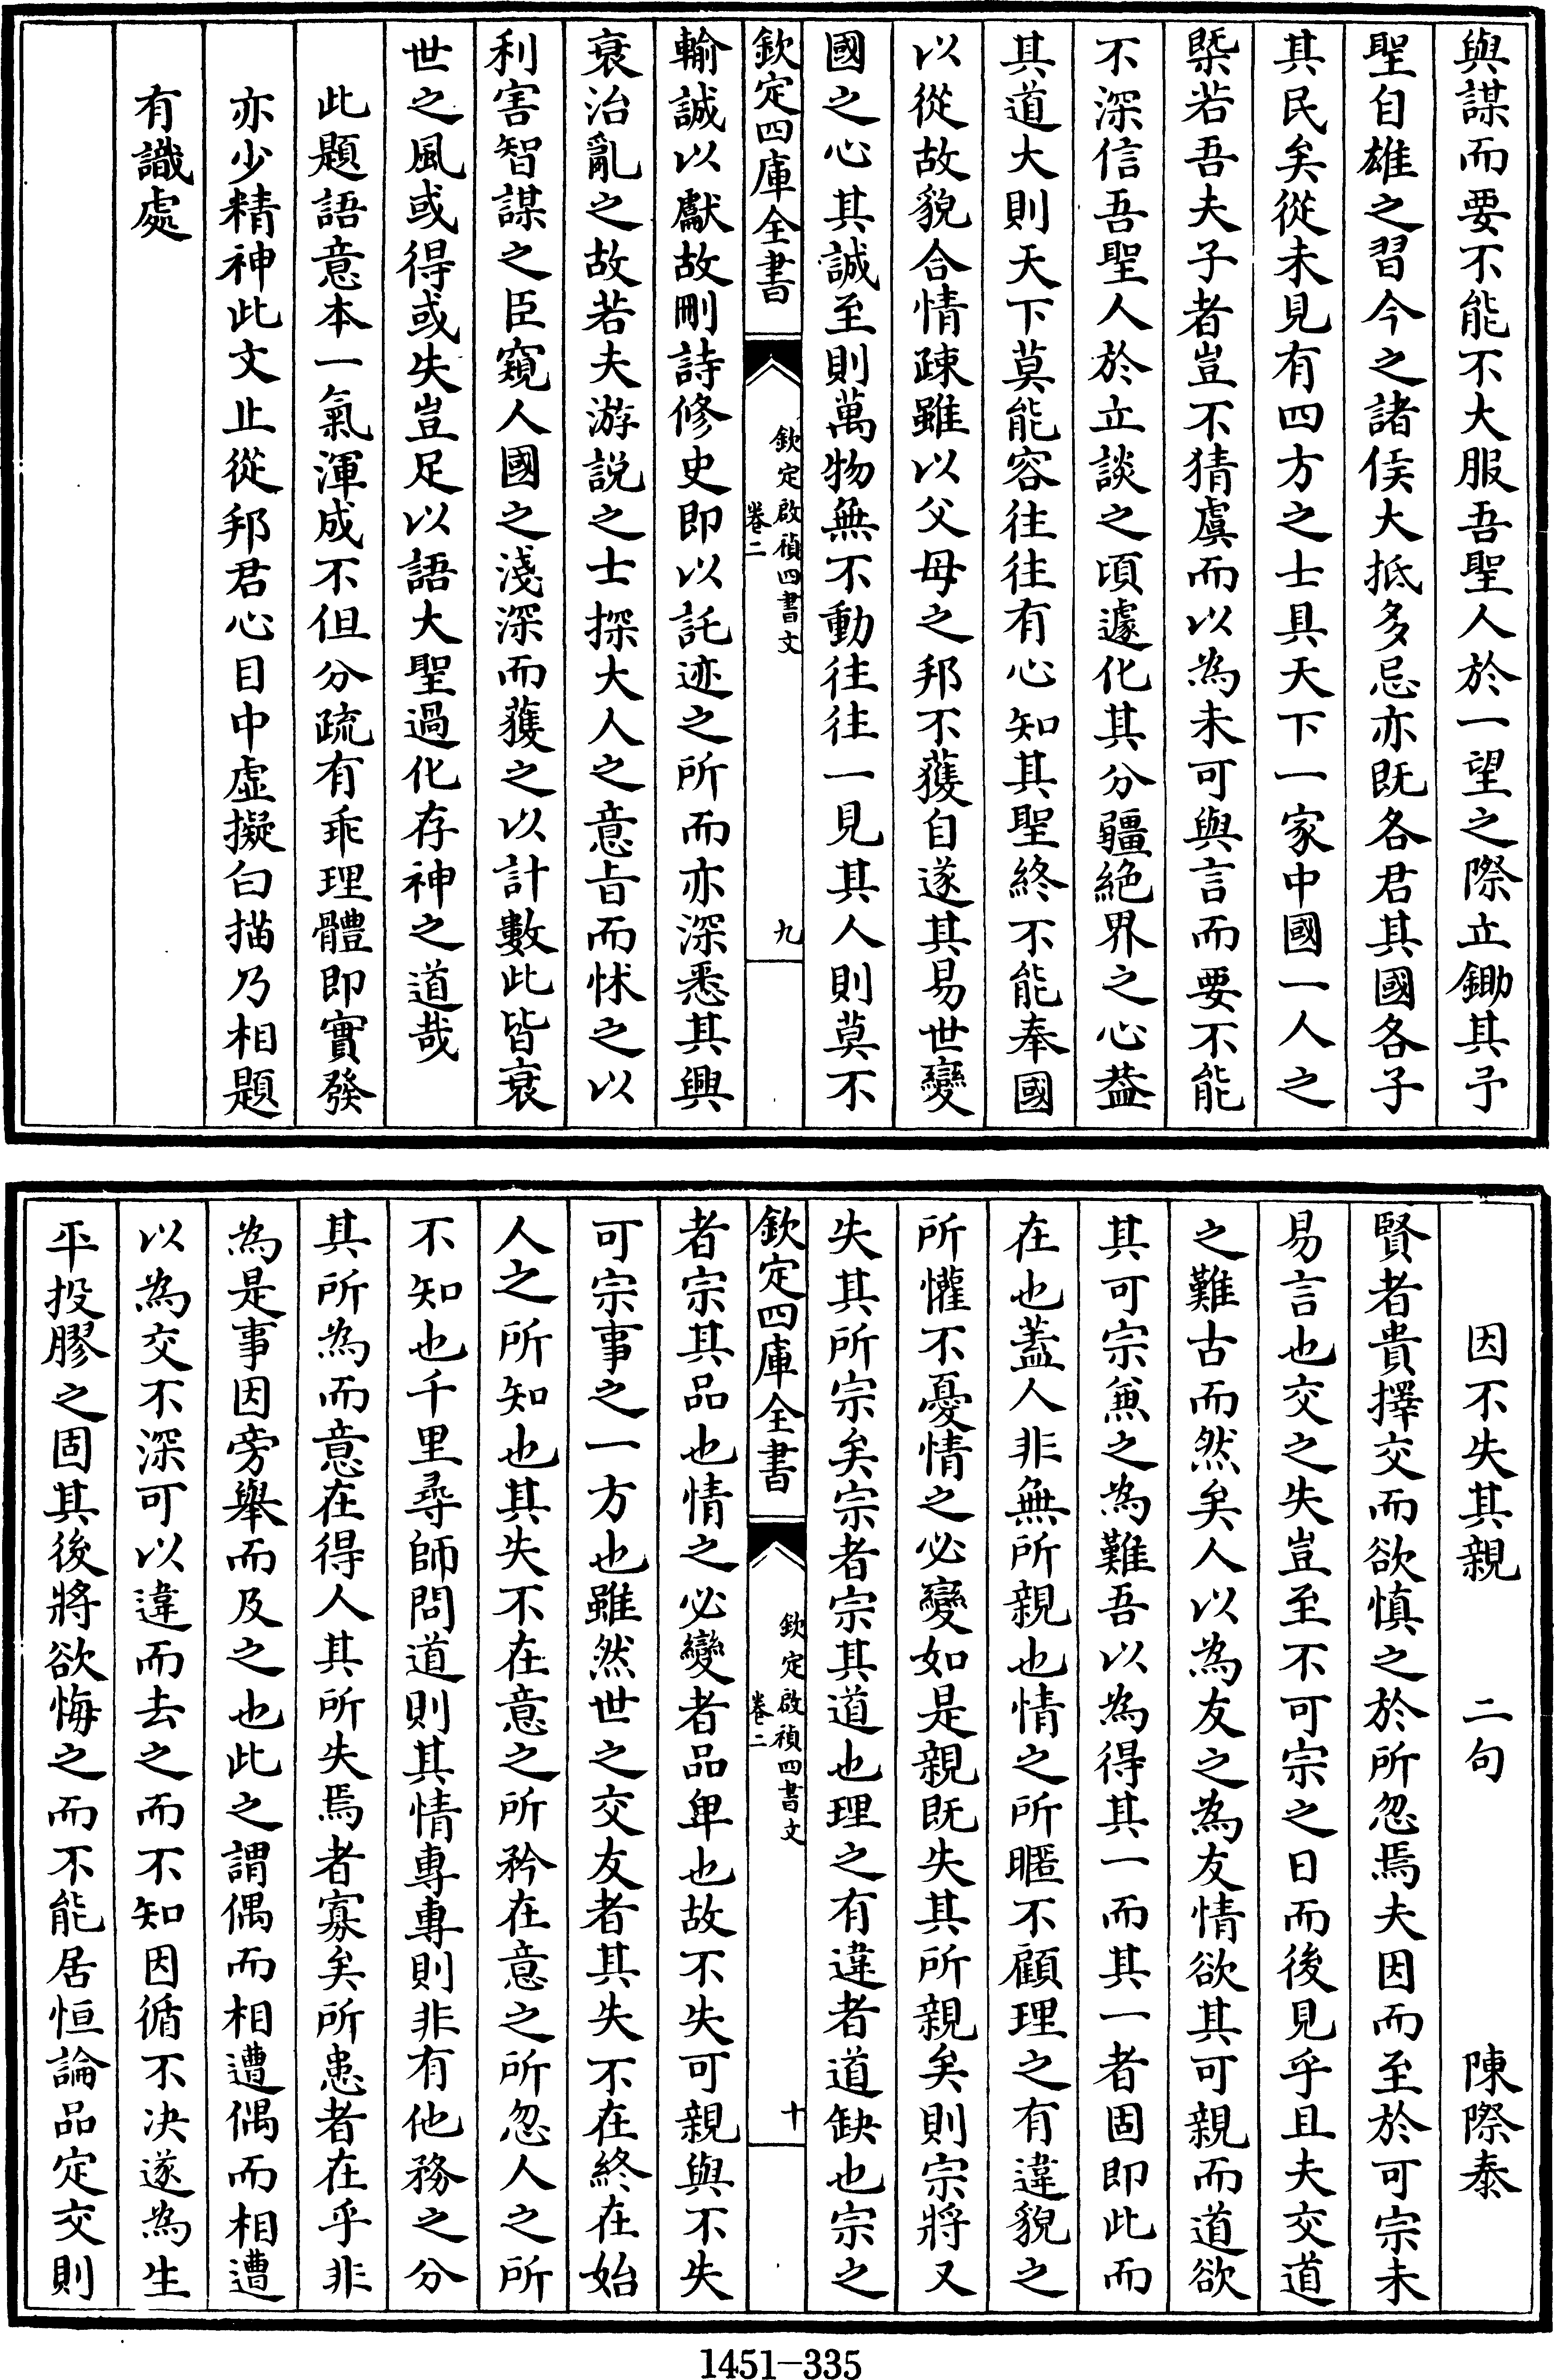 與謀而要不能不大服吾聖人於一望之際立鋤其予
聖自雄之習今之諸侯大抵多忌亦既各君其國各子
其民矣從未見有四方之士具天下一家中國一人之
槩若吾夫子者豈不猜虞而以為未可與言而要不能
不深信吾聖人於立談之頃遽化其分疆絕界之心葢
其道大則天下莫能容往往有心知其聖終不能奉國
以從故貌合情疎雖以父母之邦不獲自遂其易世變
國之心其誠至則萬物無不動往往一見其人則莫不
欽定四庫全書
欽定啟禎四書文
卷二
九
輸誠以獻故刪詩修史即以託迹之所而亦深悉其興
衰治亂之故若夫游説之士探大人之意旨而怵之以
利害智謀之臣窺人國之淺深而獲之以計數此皆衰
世之風或得或失豈足以語大聖過化存神之道哉
此題語意本一氣渾成不但分疏有乖理體即實發
亦少精神此文止從邦君心目中虛擬白描乃相題
有識處
因不失其親 二句 陳際泰
賢者貴擇交而欲慎之於所忽焉夫因而至於可宗未
易言也交之失豈至不可宗之日而後見乎且夫交道
之難古而然矣人以為友之為友情欲其可親而道欲
其可宗兼之為難吾以為得其一而其一者固即此而
在也蓋人非無所親也情之所暱不顧理之有違貌之
所懽不憂情之必變如是親既失其所親矣則宗將又
失其所宗矣宗者宗其道也理之有違者道缺也宗之
欽定四庫全書
欽定啟禎四書文
卷二
十
者宗其品也情之必變者品卑也故不失可親與不失
可宗事之一方也雖然世之交友者其失不在終在始
人之所知也其失不在意之所矜在意之所忽人之所
不知也千里尋師問道則其情專專則非有他務之分
其所為而意在得人其所失焉者寡矣所患者在乎非
為是事因旁舉而及之也此之謂偶而相遭偶而相遭
以為交不深可以違而去之而不知因循不決遂為生
平投膠之固其後將欲悔之而不能居恒論品定交則
1451-335